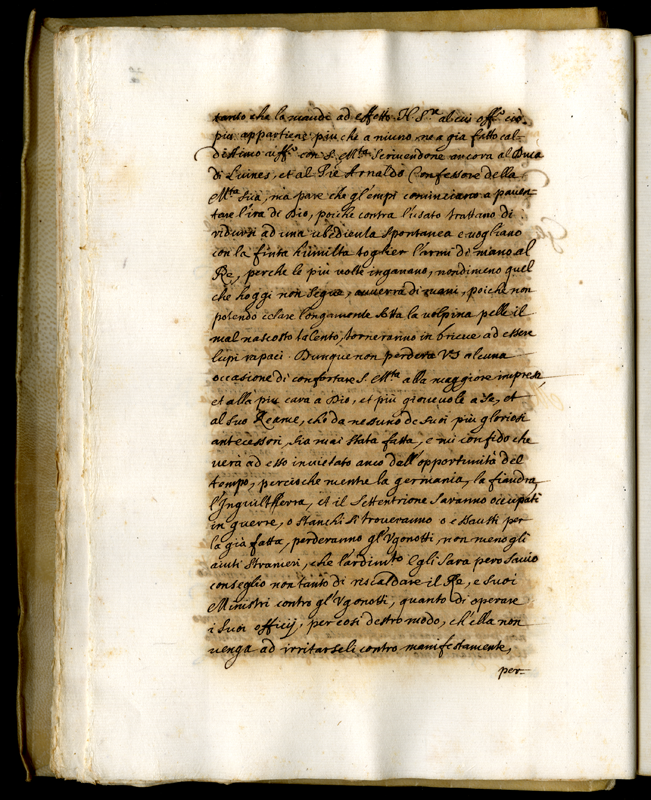 tanto che la mandi ad effetto. Il S.re al cui off.o ciò
più appartiene più che a niuno ne a già fatto cal-
dissimo uff.o con S. M.ta scrivendone ancora al Duca
di Luines, et al Pre Arnaldo Confessore della
M.ta Sua, ma pare che gl'empi cominciano a paven-
tare l'ira di Dio, poiche contra l'usato trattano di
ridursi ad una ubidienta spontanea e vogliano
con la finta humiltà toglier l'armi di mano al
Re, perche le più volte inganano, nondimeno quel
che hoggi non segue, auuerrà di mani, poiche non
potendo celare longamente sotto la volpina pelle il
mal nascosto talento, torneranno in brieue ad essere
lupi rapaci. Dunque non perderà VS alcuna
occasione di confortare S. M.ta alla maggiore impresa,
et alla più cara a Dio, et più gioueuole a se, et
al suo Reame, che da nessuno de suoi più gloriosi
antecessori sia mai stata fatta, e mi confido che
verà ad esso inuistato anco dall'opportunità del
tempo, percioche mentre la germania, la fiandra,
l'Inguiltherra, et il Settentrione saranno occupati
in guerre, o stanchi si troueranno o essausti per
la già fatta, perderanno gl'Vgonotti non meno gli
aiuti stranieri, che l'ardimto Egli sara pero sauio
conseglio non tanto di riscaldare il Re, e suoi
Ministri contro gl'Vgonotti, quanto di operare
i suoi officij, per cosi destro modo, ch'ella non
uenga ad irritarseli contro manifestamente,
per-